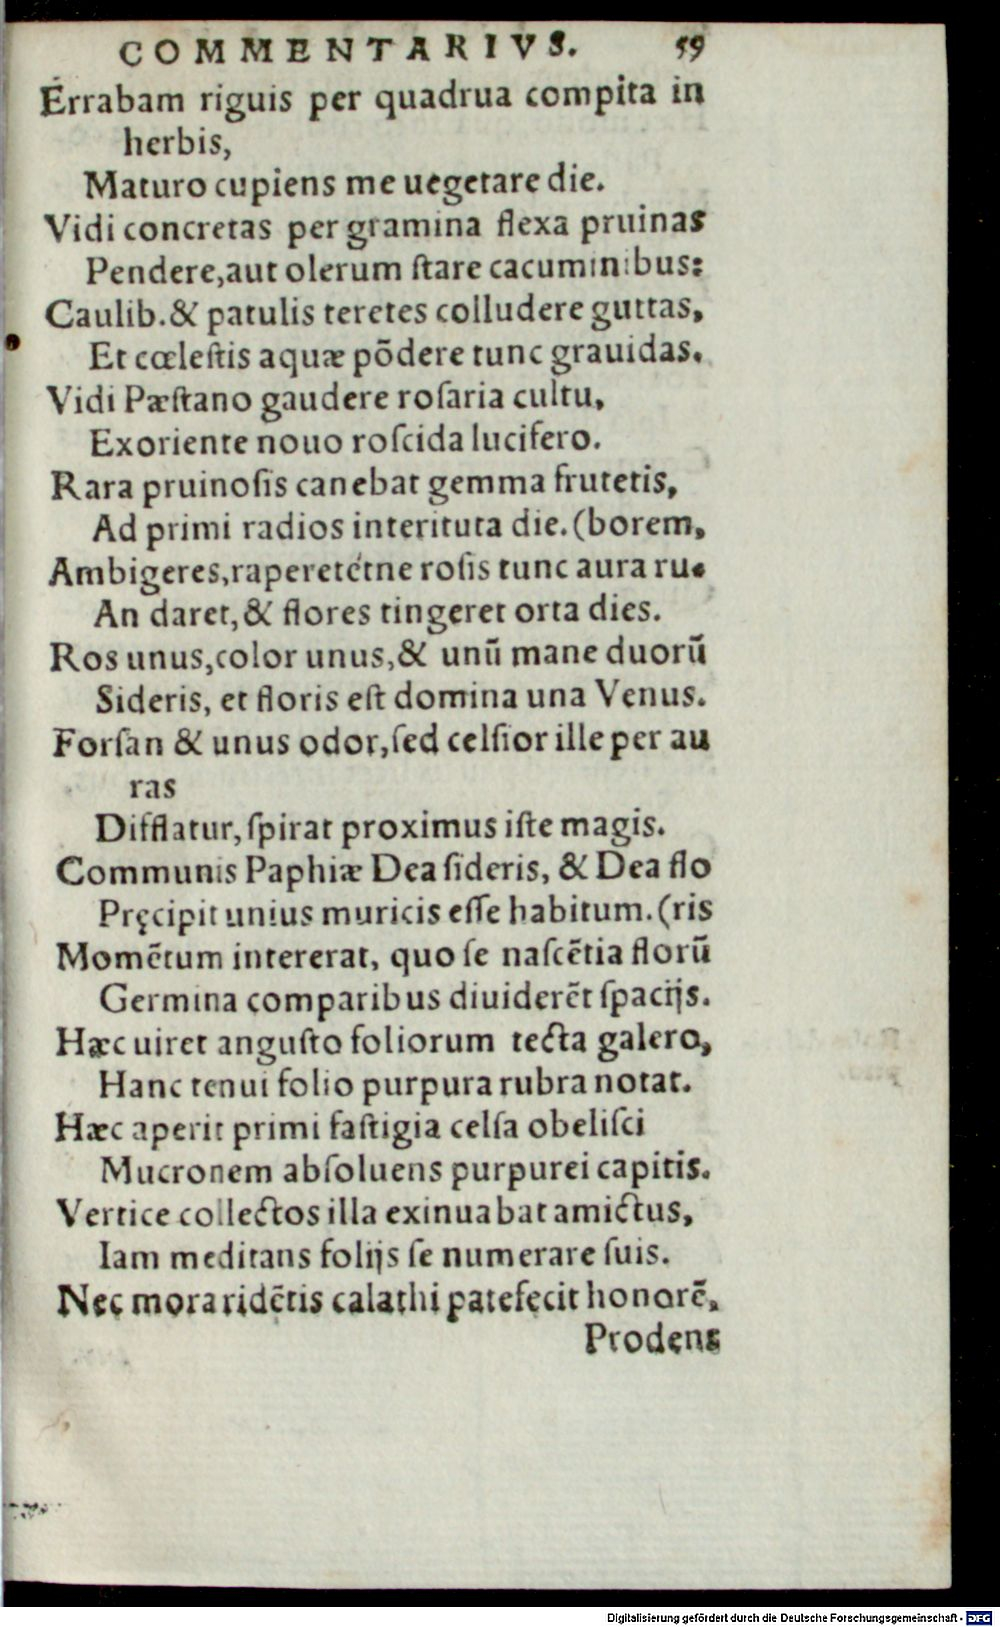 COMMENTARIVS. 59
Errabam riguis per quadrua compita in
herbis,
Maturo cupiens me uegetare die.
Vidi concretas per gramina flexa pruinas
Pendere, aut olerum ſtare cacuminibus:
Caulib. & patulis teretes colludere guttas,
Et cœleſtis aquæ põdere tunc grauidas.
Vidi Pæſtano gaudere roſaria cultu,
Exoriente nouo roſcida lucifero.
Rara pruinoſis canebat gemma frutetis,
Ad primi radios interitura die. (borem,
Ambigeres, raperetétne roſis tunc aura ru-
An daret, & flores tingeret orta dies.
Ros unus, color unus, & unũ mane duorũ
Sideris, et floris eſt domina una Venus.
Forſan & unus odor, ſed celſior ille per au
ras
Difflatur, ſpirat proximus iſte magis.
Communis Paphiæ Dea ſideris, & Dea flo
Pręcipit unius muricis eſſe habitum. (ris
Momẽtum intererat, quo ſe naſcẽtia florũ
Germina comparibus diuiderẽt ſpacijs.
Hæc uiret anguſto foliorum tecta galero,
Hanc tenui folio purpura rubra notat.
Hæc aperit primi faſtigia celſa obeliſci
Mucronem abſoluens purpurei capitis.
Vertice collectos illa exinuabat amictus,
Iam meditans folijs ſe numerare ſuis.
Nec mora ridẽtis calathi patefecit honorẽ,
Prodens
Digitalisierung gefördert durch die Deutsche Forschungsgemeinschaft - DFG